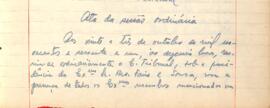 Ata da sessão ordinária
Aos vinte e três de outubro de mil
novecentos e sessenta e um, às dezenove horas,
reuniu-se ordinariamente o E. Tribunal, sob a presi-
dência do Exmo. e Souza, com a
presença de todos os Exmos membros mencionados em